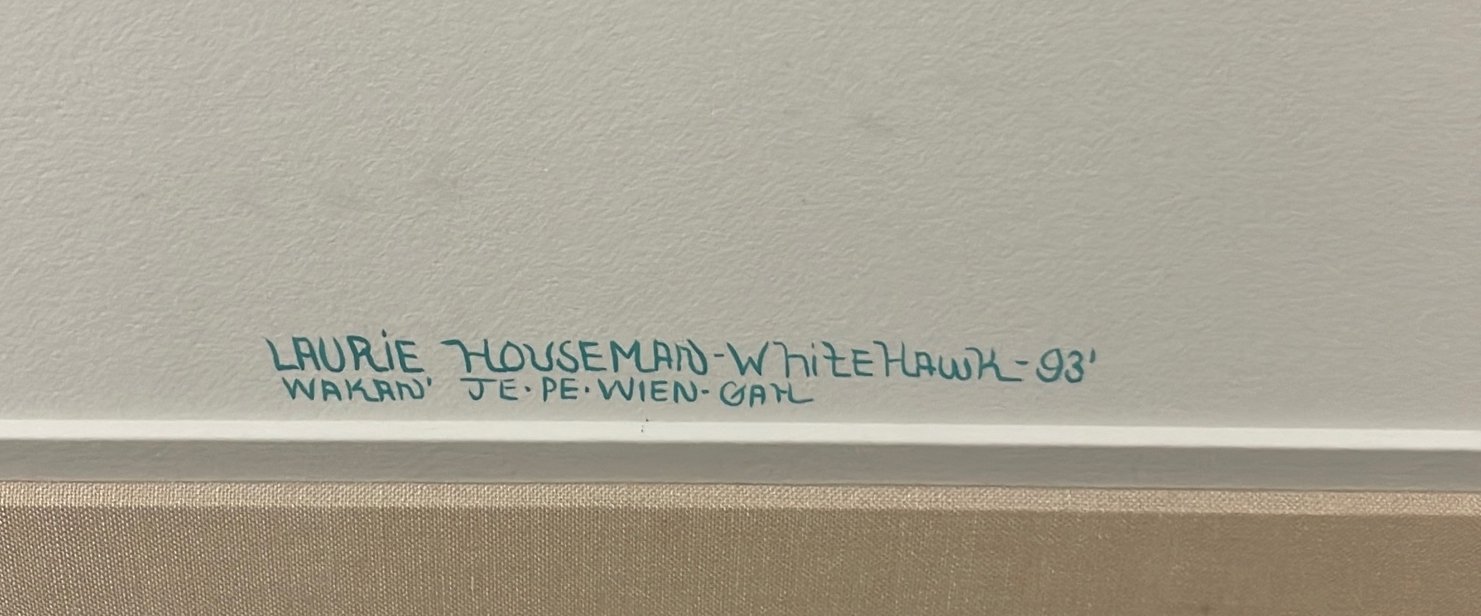 LAURiE HOUSEMAN-WhitEHAWK-93'
WAKAN' JE·PE·WIEN-GAH